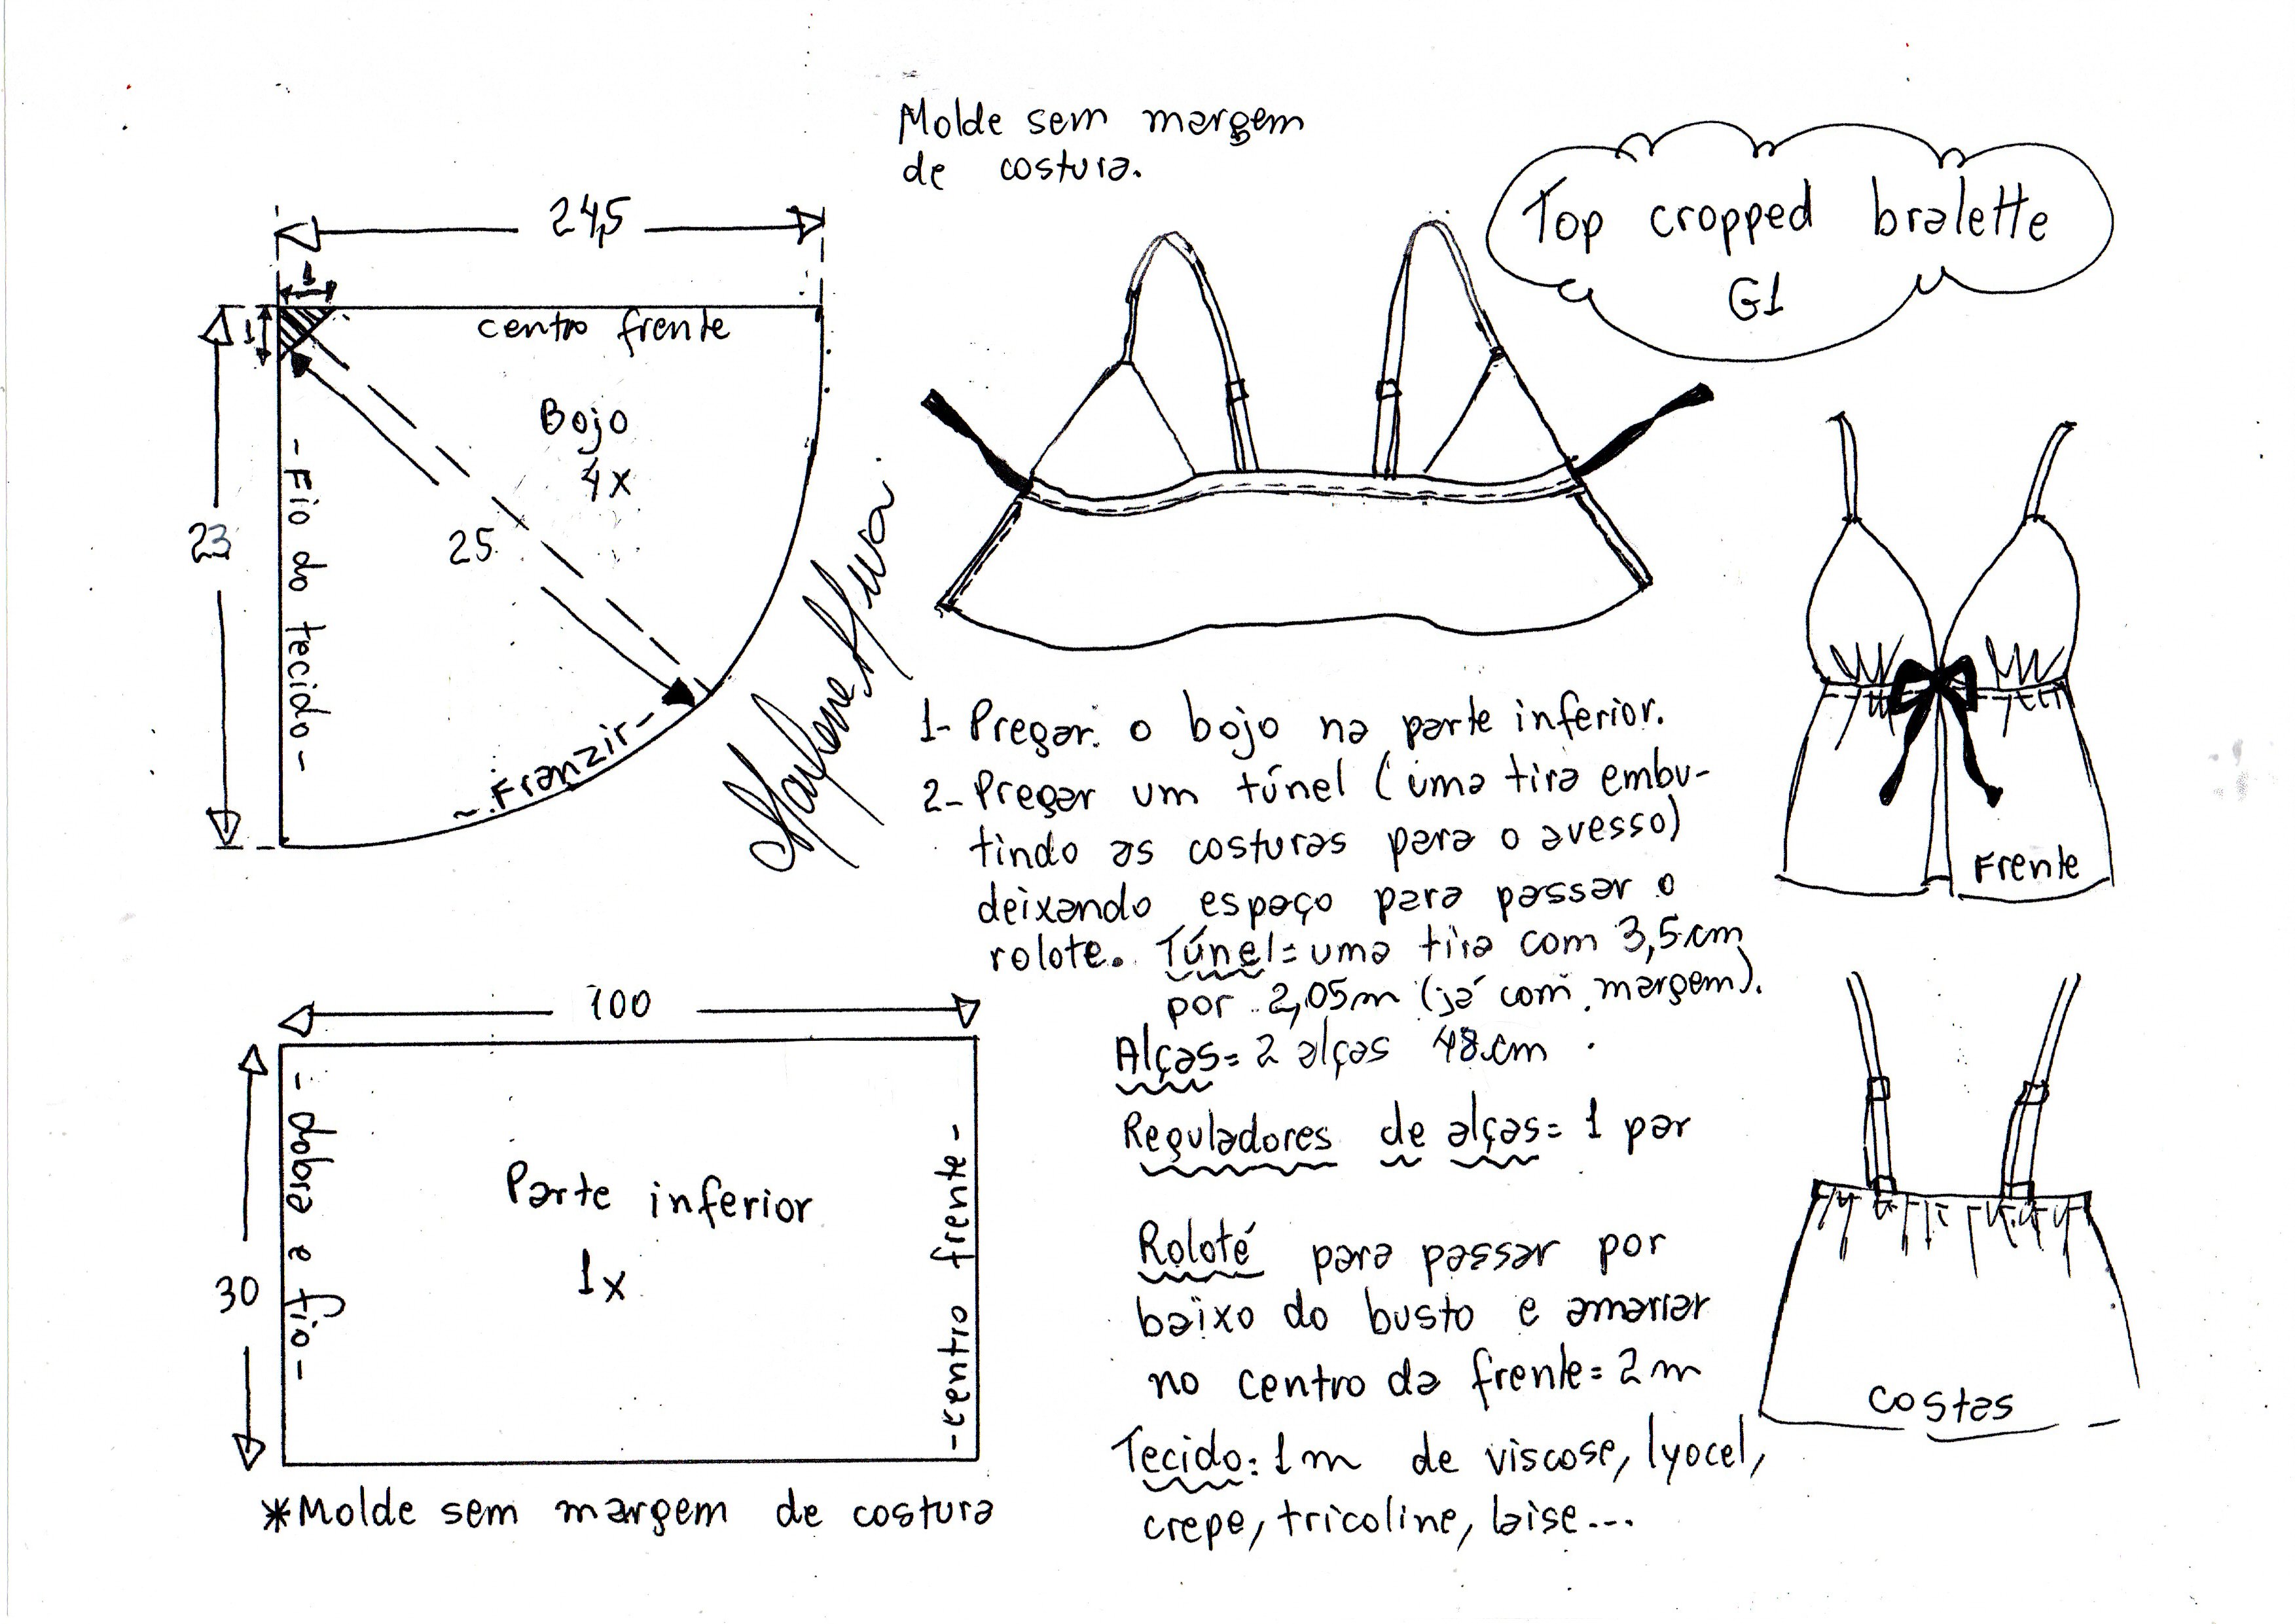 Molde sem margem
de costura.
Top cropped bralette
G1
24,5
1
1
centro frente
Bojo
4x
23
- Fio do tecido -
25
- Franzir -
1- Pregar o bojo na parte inferior.
2- Pregar um túnel (uma tira embu-
tindo as costuras para o avesso)
deixando espaço para passar o
rolote. Túnel= uma tira com 3,5 cm
por 2,05m (já com margem).
Alças= 2 alças 48 cm
Reguladores de alças= 1 par
Roloté para passar por
baixo do busto e amarrar
no centro da frente= 2m
Tecido: 1m de viscose, lyocel,
crepe, tricoline, laise...
Frente
Costas
100
30
- Dobra e fio -
Parte inferior
1x
- centro frente -
*Molde sem margem de costura